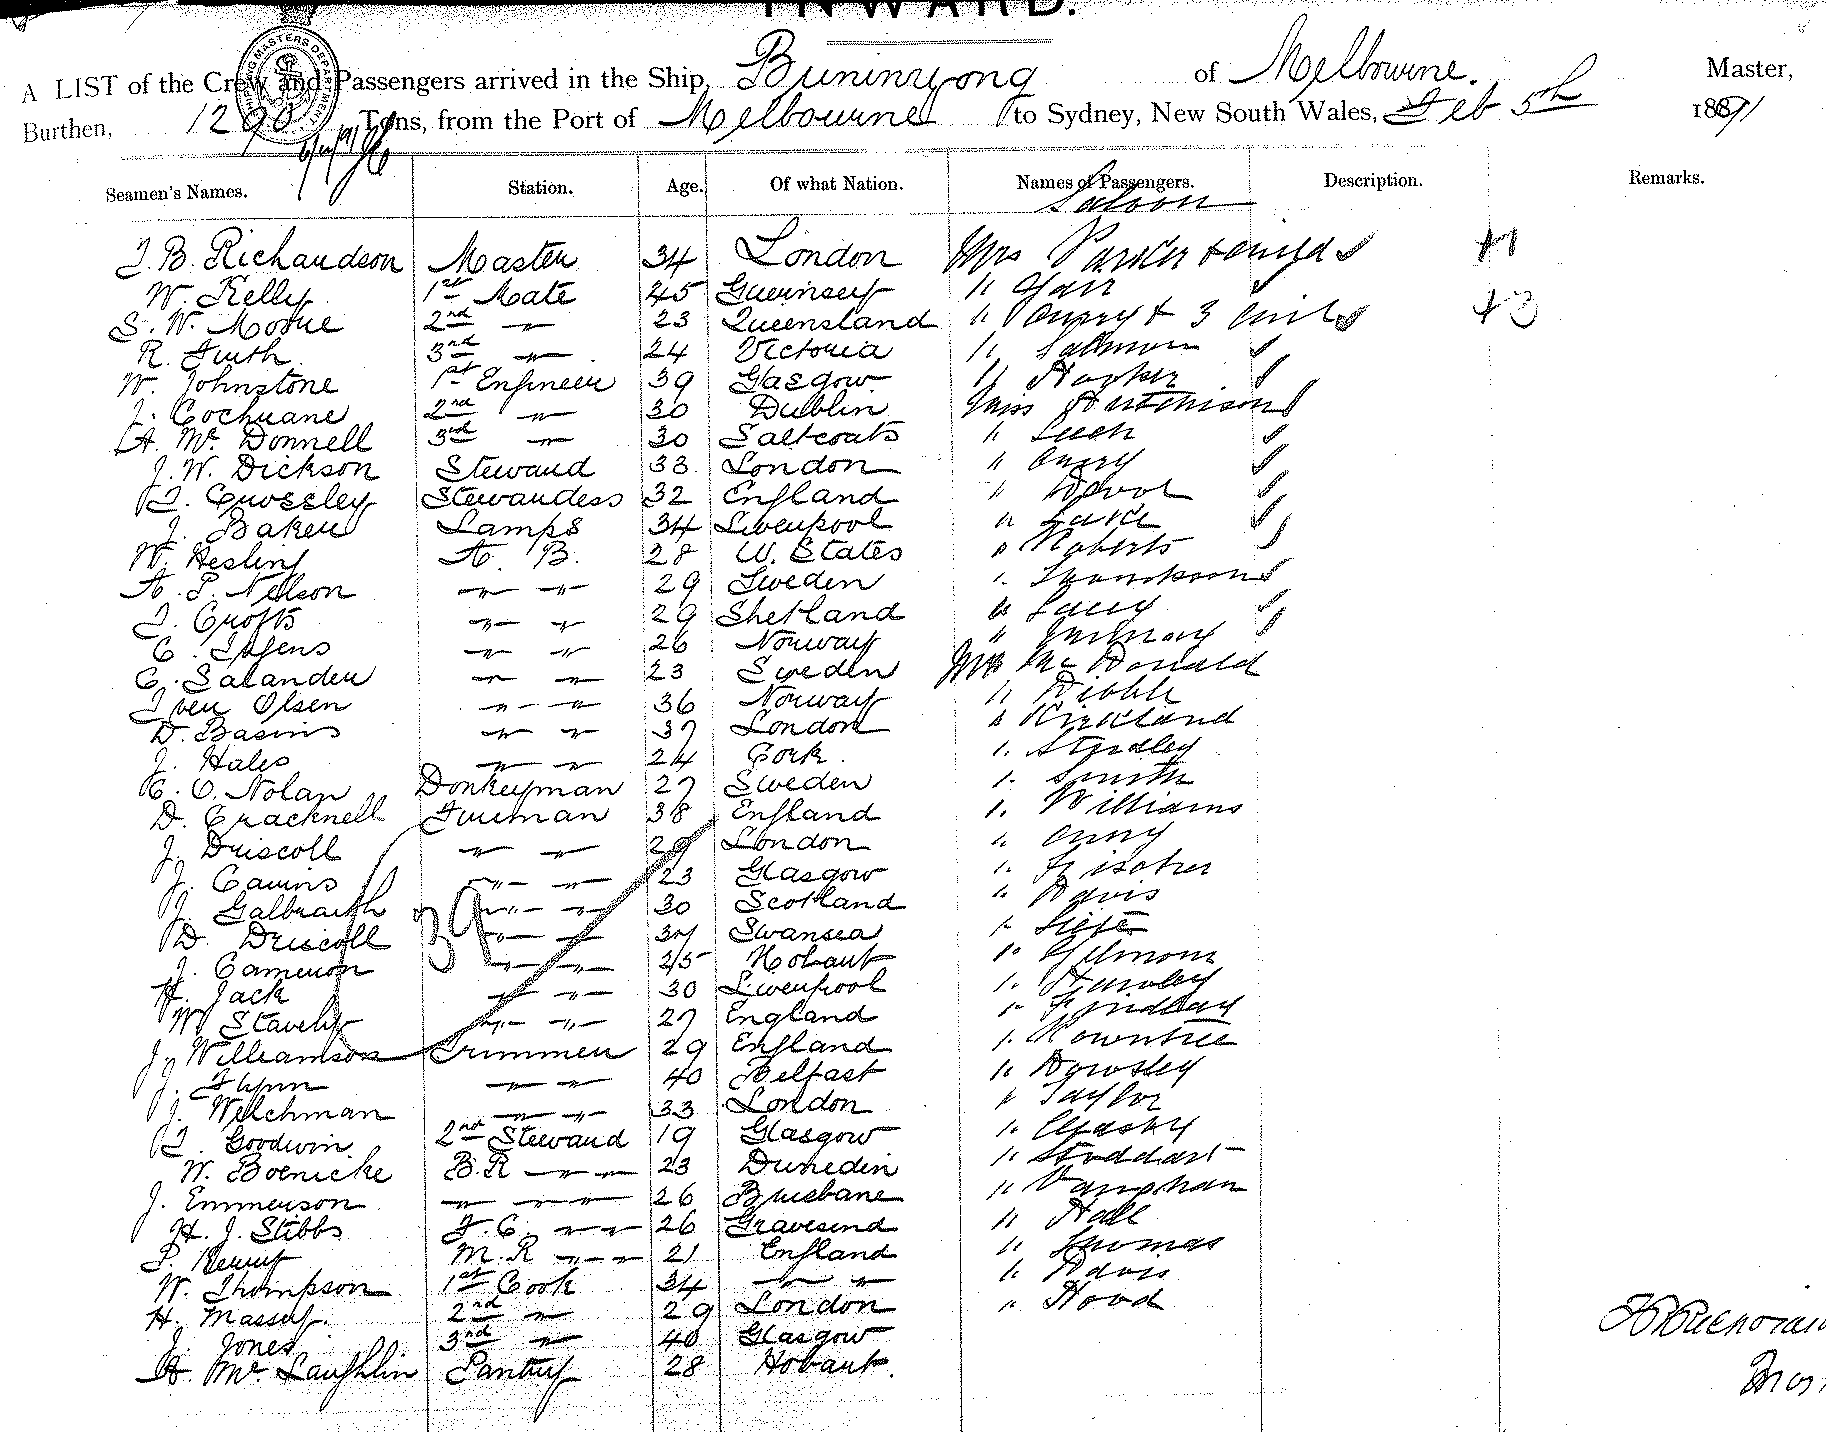 INWARD.
A LIST of the Crew and Passengers arrived in the Ship, Buninyong of Melbourne. Master,
Burthen, 1290 Tons, from the Port of Melbourne to Sydney, New South Wales, Feb 5th 1891
Seamen's Names. Station. Age. Of what Nation. Names of Passengers. Description. Remarks.
Saloon
J. B. Richardson Master 34 London Mrs Parker + child +1
W. Kelly 1st Mate 45 Guernsey "
S. W. Moore 2nd " 23 Queensland " Curry + 3 +3
R. Firth 3rd " 24 Victoria " Salmon
W. Johnstone 1st Engineer 39 Glasgow "
J. Cochrane 2nd " 30 Dublin Miss Hutchison
A. McDonnell 3rd " 30 Saltcoats "
J. W. Dickson Steward 33 London " Curry
Crossley Stewardess 32 England "
J. Baker Lamps 34 Liverpool "
W. Hesling A. B. 28 U. States " Roberts
A. P. Nelson " " 29 Sweden "
J. Crofts " " 29 Shetland " Lacy
C. " " 26 Norway "
C. Salander " " 23 Sweden Mr McDonald
Iver Olsen " " 36 Norway " Dibble
D. Basins " " 37 London " Kirkland
J. Hales " " 24 Cork " Studley
C. O. Nolan Donkeyman 27 Sweden " Smith
D. Cracknell Fireman 38 England " Williams
J. Driscoll " " 29 London " Curry
J. Cairns " " 23 Glasgow "
J. Galbraith " " 30 Scotland " Davis
39
D. Driscoll " " 37 Swansea "
J. Cameron " " 25 Hobart " Gilmour
H. Jack " " 30 Liverpool " Hawley
W. Stavely " " 27 England " Findlay
J. Williamson Trimmer 29 England " Rowntree
J. Flynn " " 40 Belfast "
J. Welchman " " 33 London " Taylor
Goodwin 2nd Steward 19 Glasgow "
W. Boenicke B. R " " 23 Dunedin " Stoddart
J. Emmerson " " " 26 Brisbane " Vaughan
H. J. Stibbs F. C. " " 26 Gravesend " Hall
P. M. R " " 21 England " Thomas
W. Thompson 1st Cook 34 " " " Davis
H. Massey 2nd " 29 London " Hood
J. Jones 3rd " 40 Glasgow
A. McLaughlin Pantry 28 Hobart.